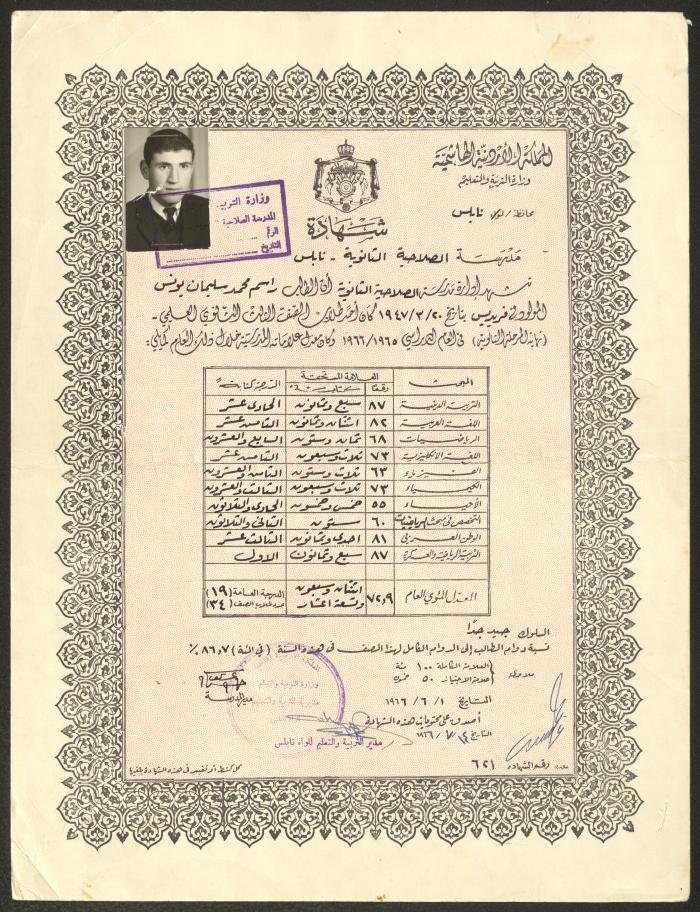 المملكة الأردنية الهاشمية
وزارة التربية والتعليم
محافظة / لواء نابلس
شهادة
وزارة التربية
المدرسة الصلاحية
الرقم
التاريخ
مدرسة الصلاحية الثانوية - نابلس
تشهد إدارة مدرسة الصلاحية الثانوية أن الطالب راسم محمد سليمان يونس
المولود في فريديس بتاريخ ١٩٤٧/٣/٢٠ كان أحد طلاب الصف الثالث الثانوي العلمي -
(نهاية المرحلة الثانوية) في العام الدراسي ١٩٦٦/١٩٦٥ وكان معدل علاماته المدرسية خلال ذلك العام كما يلي:
المبحث العلامة المستحقة الدرجة كتابةً
رقماً كتابة
التربية الدينية ٨٧ سبع وثمانون الحادي عشر
اللغة العربية ٨٢ اثنتان وثمانون الثامن عشر
الرياضيات ٦٨ ثمان وستون السابع والعشرون
اللغة الانكليزية ٧٣ ثلاث وسبعون الثامن عشر
الفيزياء ٦٣ ثلاث وستون الثامن والعشرون
الكيمياء ٧٣ ثلاث وسبعون الثالث والعشرون
الأحياء ٥٥ خمس وخمسون الحادي والثلاثون
التخصص في مبحث الرياضيات ٦٠ ستون الثاني والثلاثون
الوطن العربي ٨١ احدى وثمانون الثالث عشر
التربية الرياضية والعسكرية ٨٧ سبع وثمانون الاول
المعدل المئوي العام ٧٢٫٩ اثنتان وسبعون وتسعة اعشار الدرجة العامة (١٩)
عدد طلاب الصف (٣٤)
السلوك جيد جدًا
نسبة دوام الطالب إلى الدوام الكامل لهذا الصف في هذه السنة (في المئة) ٨٦٫٧ ٪
ملاحظة { العلامة الكاملة ١٠٠ مئة
علامة الاجتياز ٥٠ خمسون
مدير المدرسة
التاريخ ١٩٦٦/٦/١
أصدق على محتويات هذه الشهادة
التاريخ
مدير التربية والتعليم للواء نابلس
رقم الشهادة ٦٢١
كل كشط أو تغيير في هذه الشهادة يلغيها